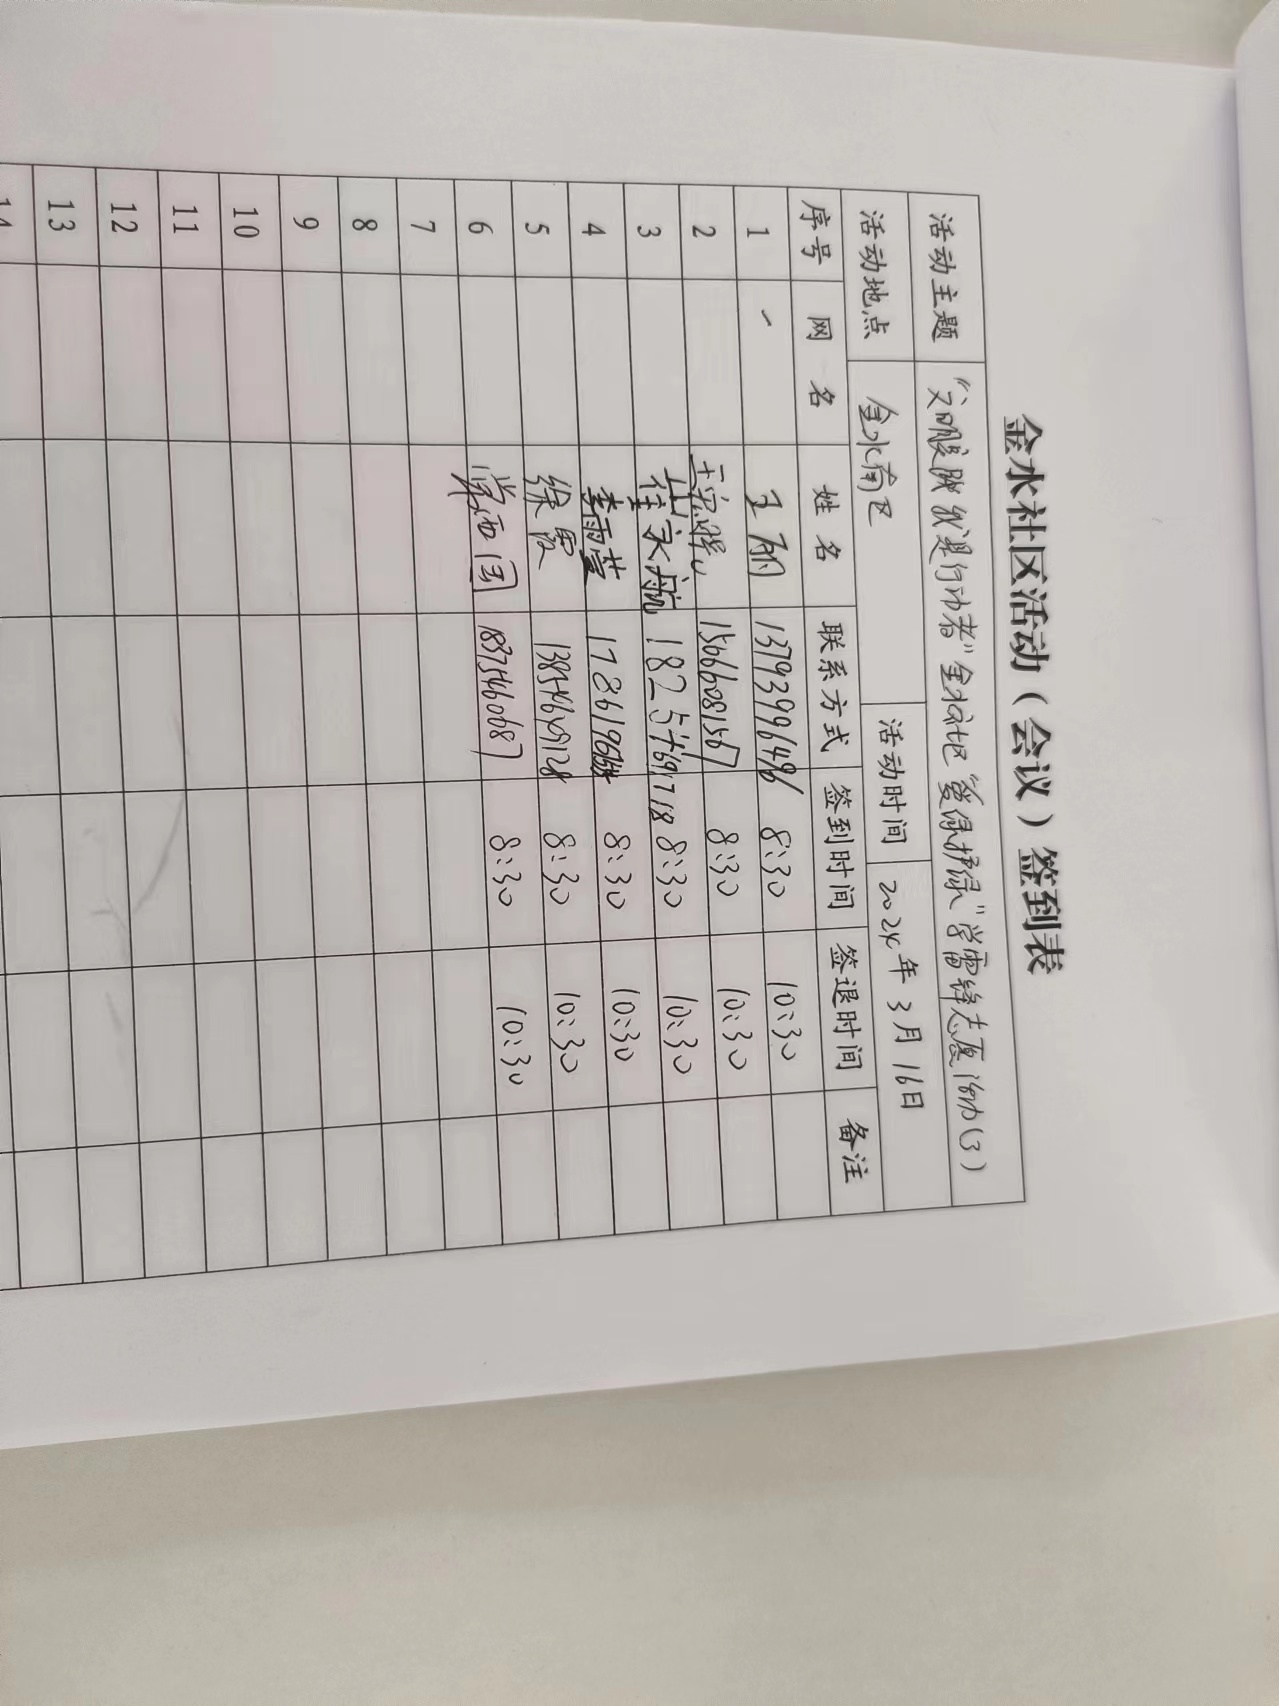 金水社区活动（会议）签到表
活动主题 “文明殷都 我是行动者”金水社区“爱绿护绿”学雷锋志愿活动(3)
活动地点 金水南区 活动时间 2024年3月16日
序号 网名 姓名 联系方式 签到时间 签退时间 备注
1 王丽 13793996496 8:30 10:30
2 15666081567 8:30 10:30
3 崔永航 18254691718 8:30 10:30
4 李雨萱 8:30 10:30
5 徐霞 8:30 10:30
6 18375460687 8:30 10:30
7
8
9
10
11
12
13
14